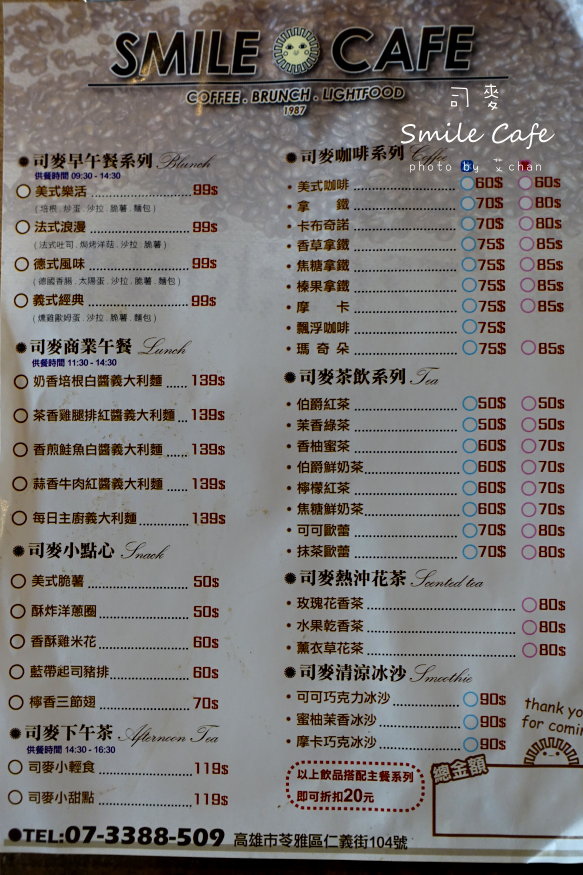 SMILE CAFE
COFFEE . BRUNCH . LIGHTFOOD
1987
司麥
Smile Cafe
photo by 艾chan
司麥早午餐系列 Blunch
供餐時間 09:30 - 14:30
美式樂活 99$
(培根 . 炒蛋 . 沙拉 . 脆薯 . 麵包)
法式浪漫 99$
(法式吐司 . 焗烤洋菇 . 沙拉 . 脆薯)
德式風味 99$
(德國香腸 . 太陽蛋 . 沙拉 . 脆薯 . 麵包)
義式經典 99$
(燻雞歐姆蛋 . 沙拉 . 脆薯 . 麵包)
司麥商業午餐 Lunch
供餐時間 11:30 - 14:30
奶香培根白醬義大利麵 139$
茶香雞腿排紅醬義大利麵 139$
香煎鮭魚白醬義大利麵 139$
蒜香牛肉紅醬義大利麵 139$
每日主廚義大利麵 139$
司麥小點心 Snack
美式脆薯 50$
酥炸洋蔥圈 50$
香酥雞米花 60$
藍帶起司豬排 60$
檸香三節翅 70$
司麥下午茶 Afternoon Tea
供餐時間 14:30 - 16:30
司麥小輕食 119$
司麥小甜點 119$
司麥咖啡系列 Coffee
美式咖啡 60$ 60$
拿鐵 70$ 80$
卡布奇諾 70$ 80$
香草拿鐵 75$ 85$
焦糖拿鐵 75$ 85$
榛果拿鐵 75$ 85$
摩卡 75$ 85$
飄浮咖啡 75$
瑪奇朵 75$ 85$
司麥茶飲系列 Tea
伯爵紅茶 50$ 50$
茉香綠茶 50$ 50$
香柚蜜茶 60$ 70$
伯爵鮮奶茶 60$ 70$
檸檬紅茶 60$ 70$
焦糖鮮奶茶 60$ 70$
可可歐蕾 70$ 80$
抹茶歐蕾 70$ 80$
司麥熱沖花茶 Scented tea
玫瑰花香茶 80$
水果乾香茶 80$
薰衣草花茶 80$
司麥清涼冰沙 Smoothie
可可巧克力冰沙 90$
蜜柚茉香冰沙 90$
摩卡巧克冰沙 90$
以上飲品搭配主餐系列
即可折扣20元
thank yo
for comin
總金額
TEL:07-3388-509 高雄市苓雅區仁義街104號